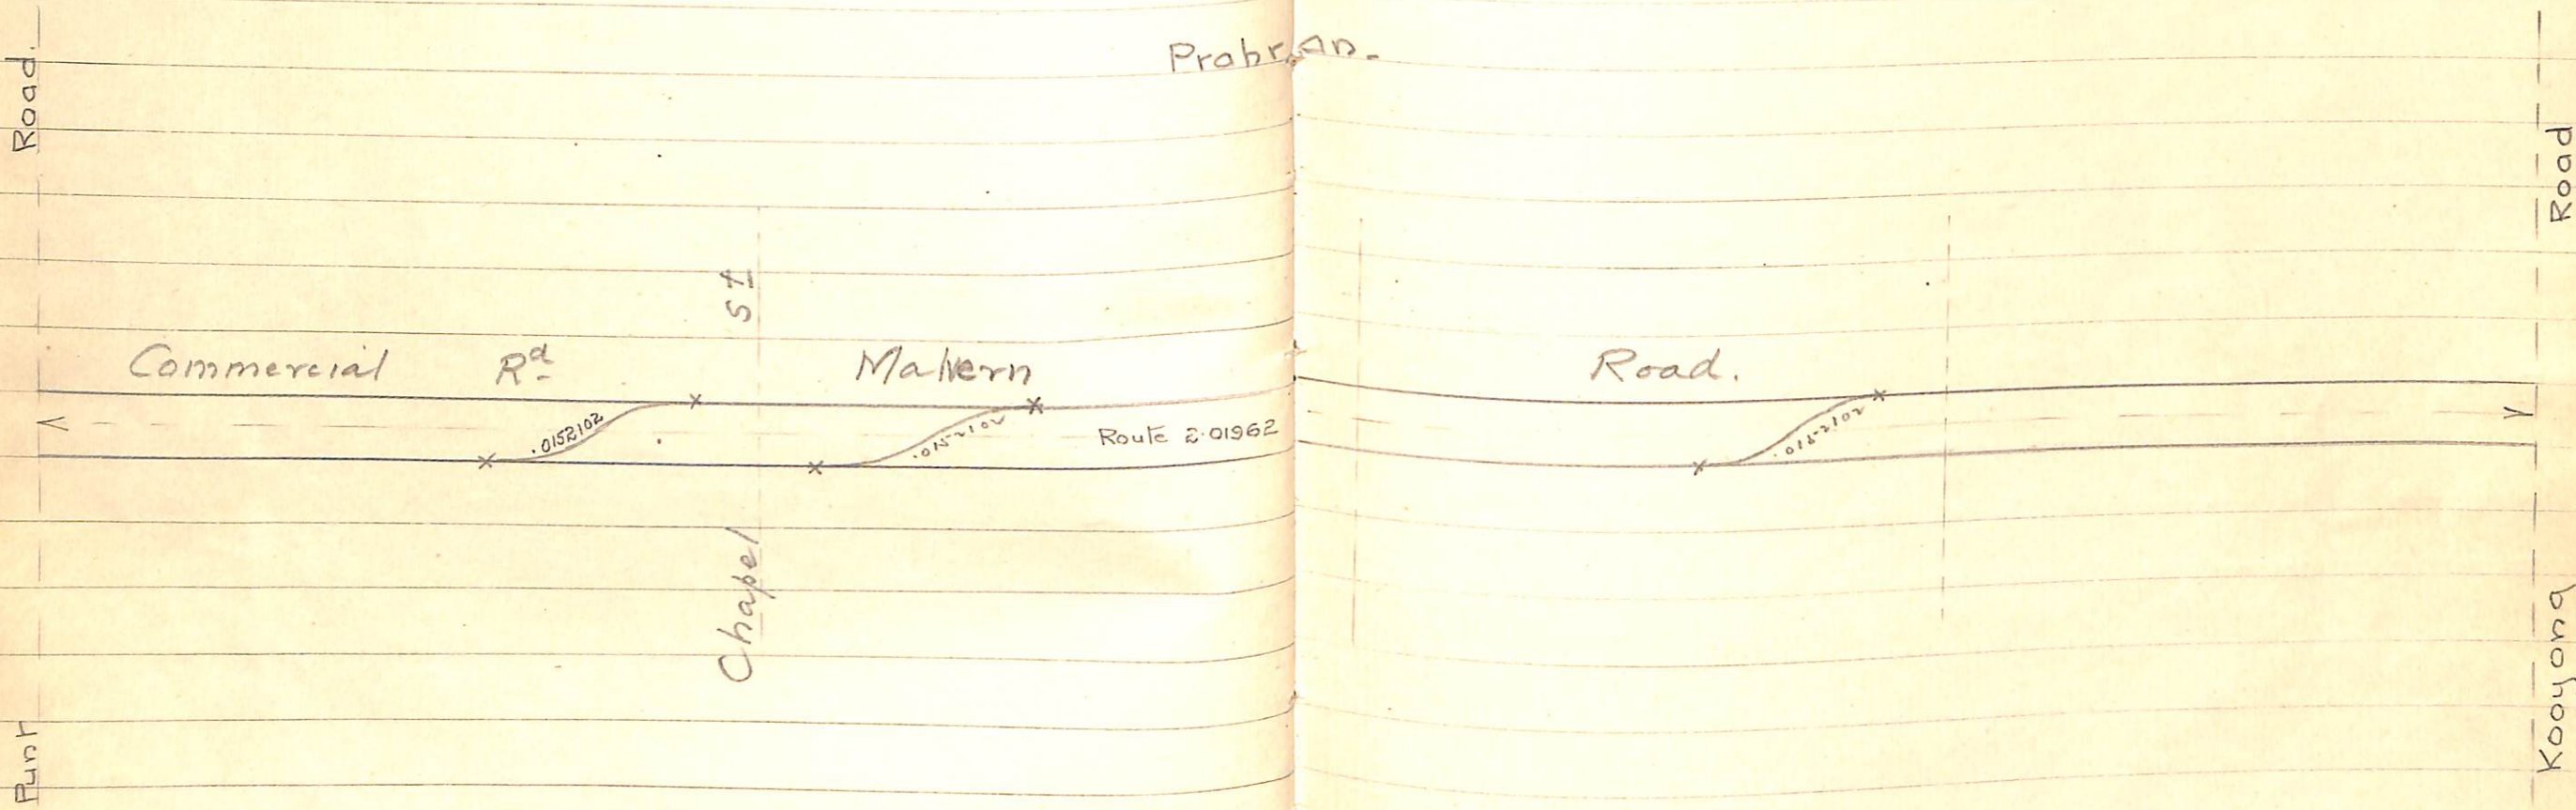 Prahran.
Punt Road.
Commercial Rd
Chapel St
Malvern Road.
.0152102
.0152102
Route 2.01962
.0152102
Kooyong Road